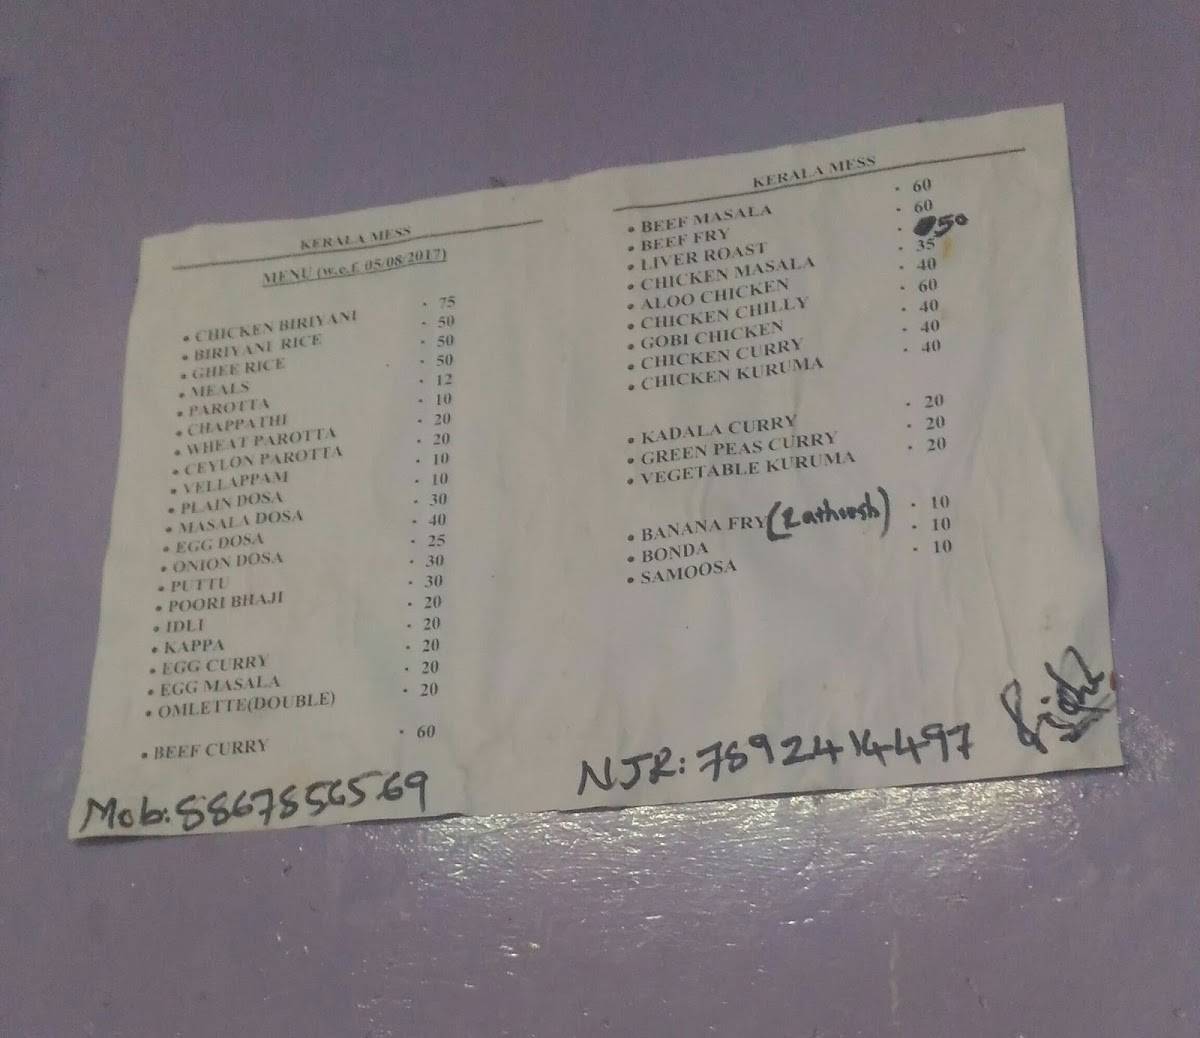 KERALA MESS
MENU (w.e.f. 05/08/2017)
• CHICKEN BIRIYANI • 75
• BIRIYANI RICE • 50
• GHEE RICE • 50
• MEALS • 50
• PAROTTA • 12
• CHAPPATHI • 10
• WHEAT PAROTTA • 20
• CEYLON PAROTTA • 20
• VELLAPPAM • 10
• PLAIN DOSA • 10
• MASALA DOSA • 30
• EGG DOSA • 40
• ONION DOSA • 25
• PUTTU • 30
• POORI BHAJI • 30
• IDLI • 20
• KAPPA • 20
• EGG CURRY • 20
• EGG MASALA • 20
• OMLETTE(DOUBLE) • 20
• BEEF CURRY • 60
Mob: 8867856569
KERALA MESS
• BEEF MASALA • 60
• BEEF FRY • 60
• LIVER ROAST • 50
• CHICKEN MASALA • 35
• ALOO CHICKEN • 40
• CHICKEN CHILLY • 60
• GOBI CHICKEN • 40
• CHICKEN CURRY • 40
• CHICKEN KURUMA • 40
• KADALA CURRY • 20
• GREEN PEAS CURRY • 20
• VEGETABLE KURUMA • 20
• BANANA FRY (Ratheesh) • 10
• BONDA • 10
• SAMOOSA • 10
NJR: 7892414497